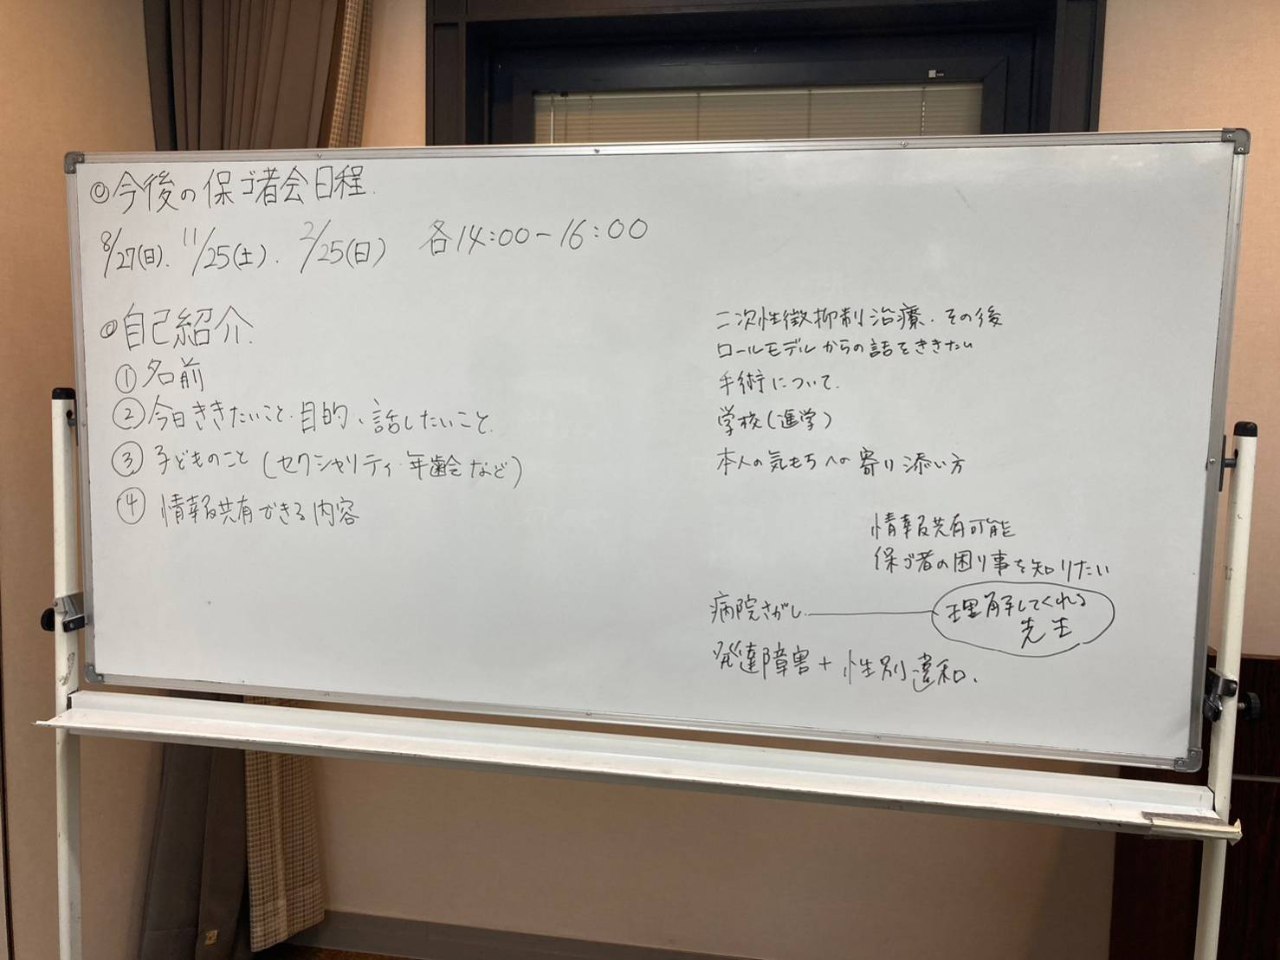 ◎今後の保ゴ者会日程.
8/27(日)、11/25(土)、2/25(日) 各14:00-16:00
◎自己紹介
①名前
②今日ききたいこと・目的、話したいこと
③子どものこと(セクシャリティ・年齢など)
④情報共有できる内容
二次性徴抑制治療、その後
ロールモデルからの話をききたい
手術について.
学校(進学)
本人の気もちへの寄り添い方
情報共有可能
保ゴ者の困り事を知りたい
病院さがし 理解してくれる
先生
発達障害+性別違和、